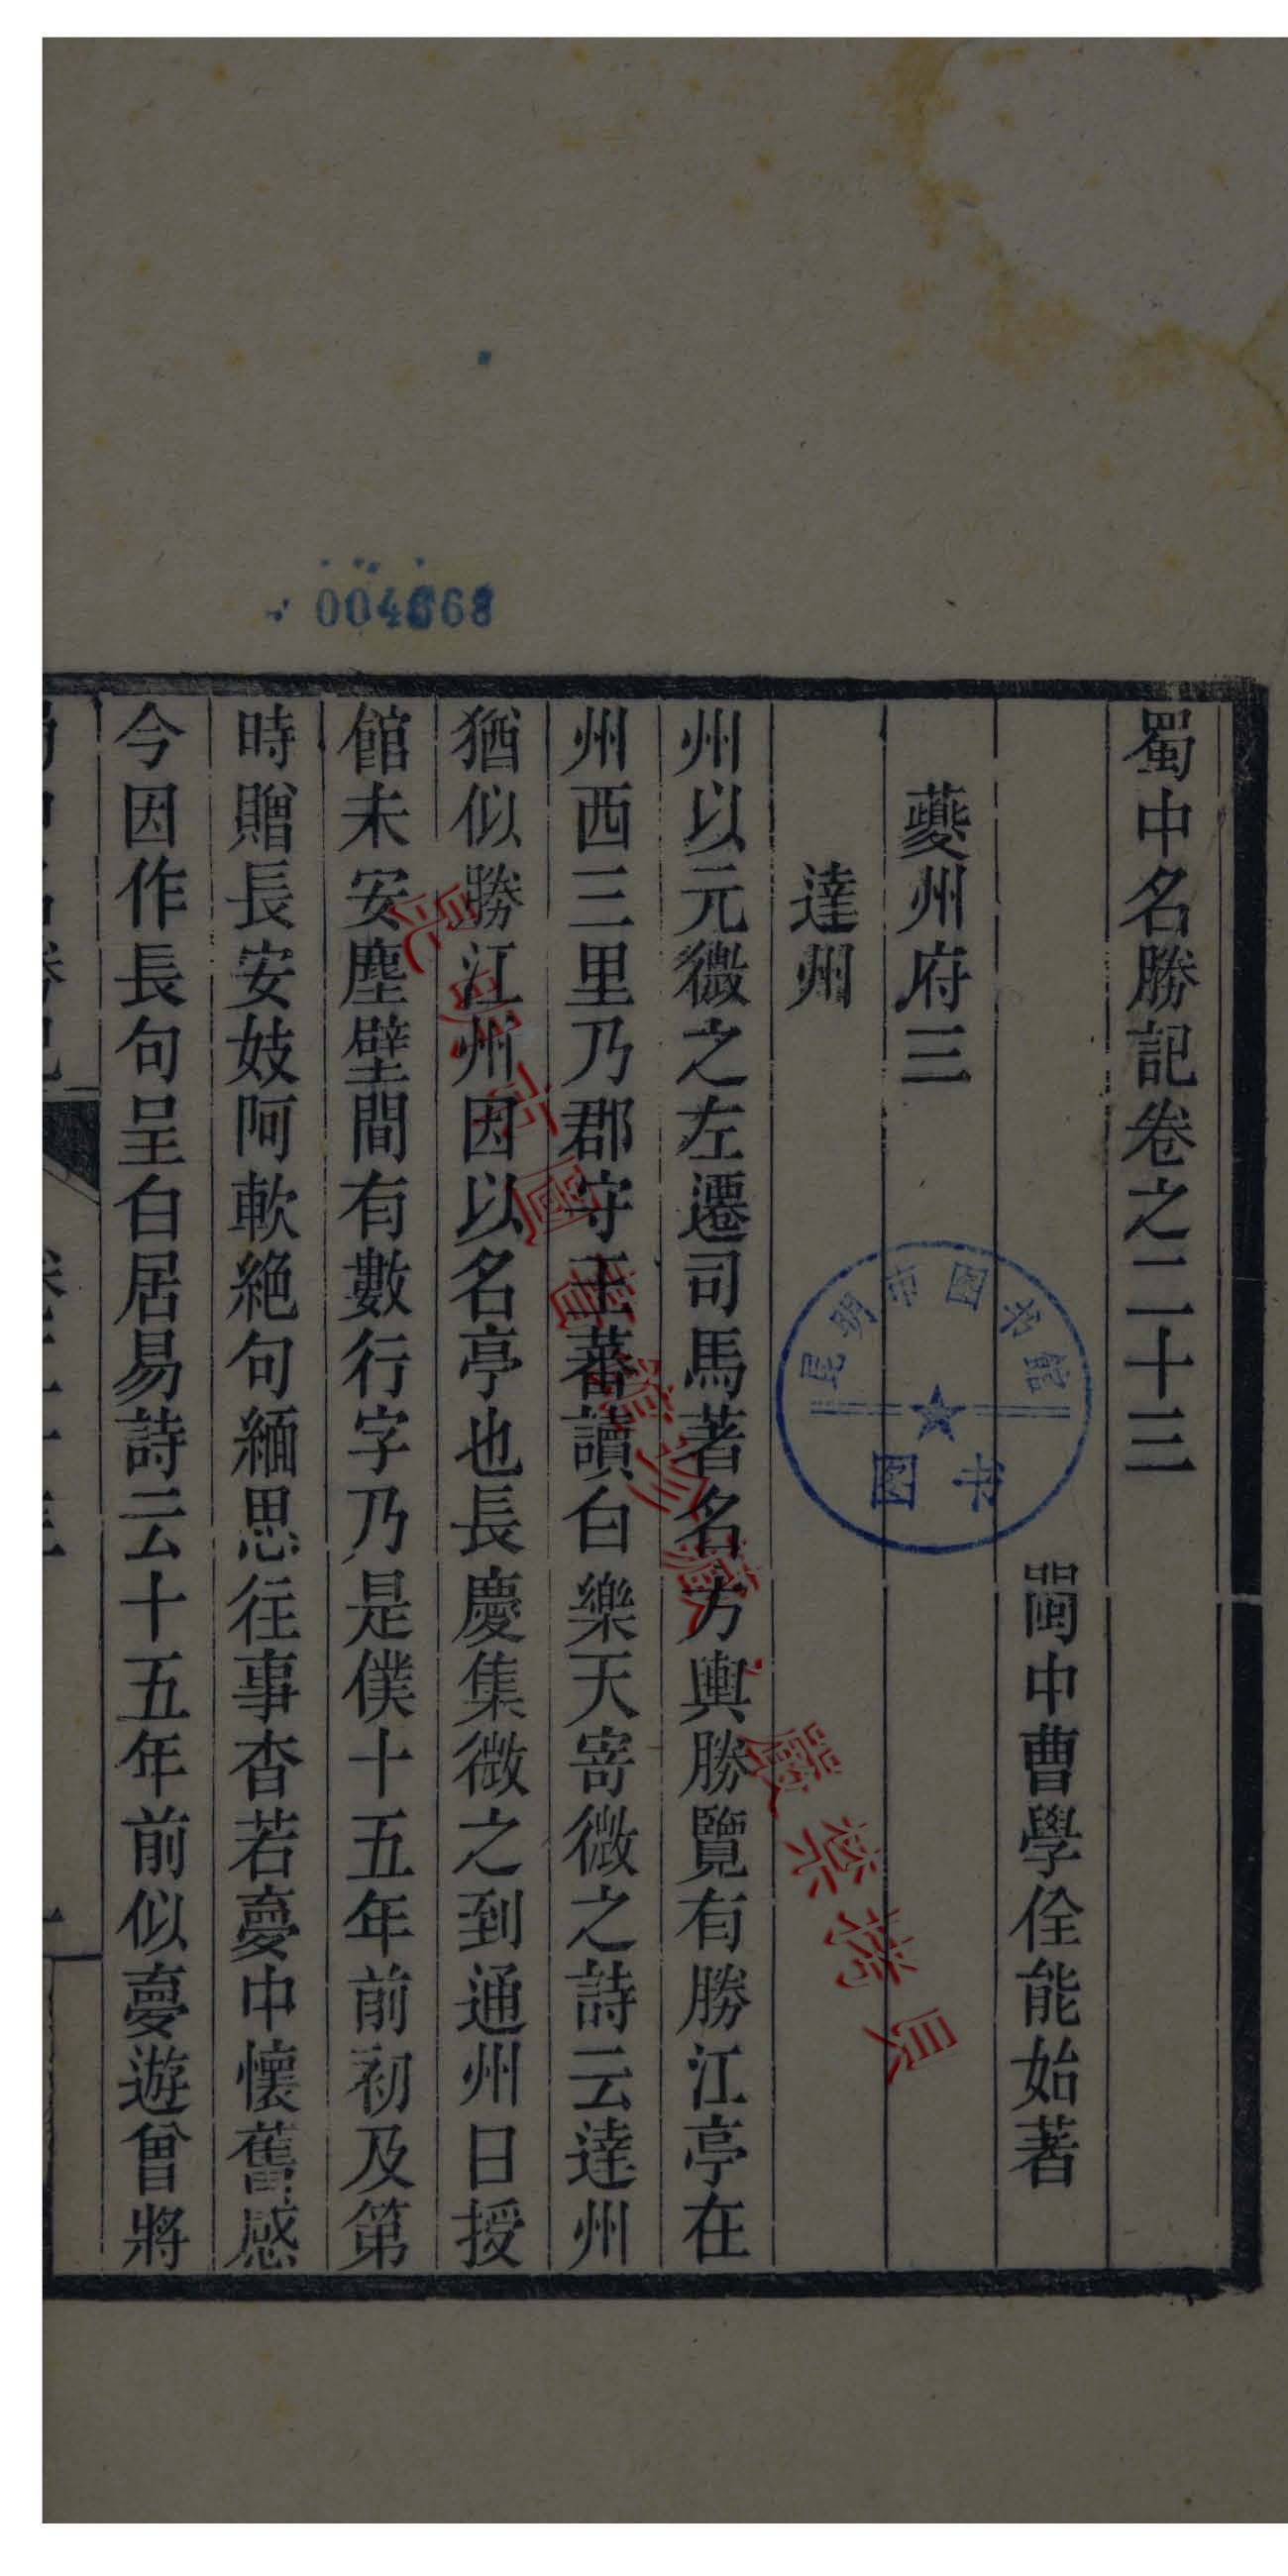 蜀中名勝記卷之二十三
閩中曹學佺能始著
夔州府三
達州
州以元微之左遷司馬著名方輿勝覽有勝江亭在
州西三里乃郡守王蕃讀白樂天寄微之詩云達州
猶似勝江州因以名亭也長慶集微之到通州日授
館未安塵壁間有數行字乃是僕十五年前初及第
時贈長安妓阿軟絕句緬思往事杳若夢中懷舊感
今因作長句呈白居易詩云十五年前似夢遊曾將
昆明市图书馆
图书
昆明市圖書館珍藏
嚴禁攜貝